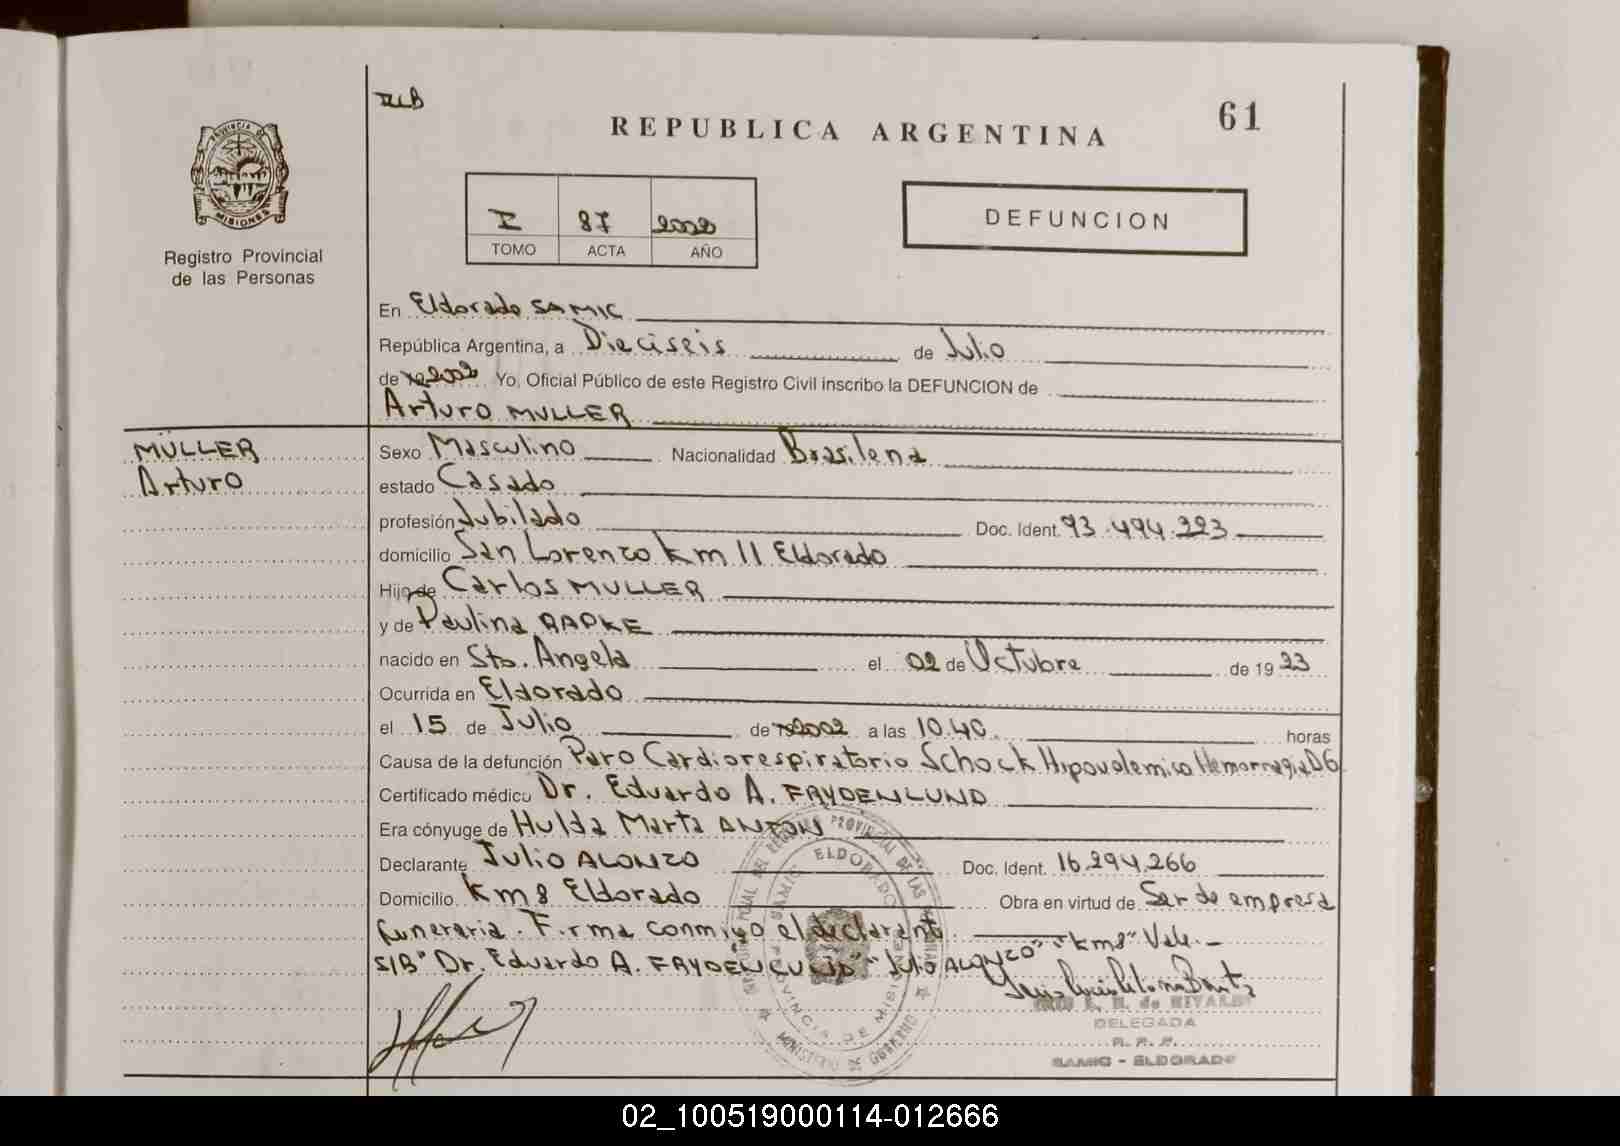 IIB
REPUBLICA ARGENTINA
61
PROVINCIA DE
MISIONES
Registro Provincial
de las Personas
I 87 2002
TOMO ACTA AÑO
DEFUNCION
En Eldorado SAMIC
República Argentina, a Dieciseis de Julio
de 2002 Yo, Oficial Público de este Registro Civil inscribo la DEFUNCION de
Arturo MULLER
MÜLLER
Arturo
Sexo Masculino Nacionalidad Brasilena
estado Casado
profesión Jubilado Doc. Ident. 93.494.223
domicilio San Lorenzo km 11 Eldorado
Hijo de Carlos MULLER
y de Paulina RAPKE
nacido en Sto. Angelo el 02 de Octubre de 1923
Ocurrida en Eldorado
el 15 de Julio de 2002 a las 10.40 horas
Causa de la defunción Paro Cardiorespiratorio Schock Hipovolemico Hemorragia DG
Certificado médico Dr. Eduardo A. FRYDENLUND
Era cónyuge de Hulda Marta ANTON
Declarante Julio ALONZO Doc. Ident. 16.294.266
Domicilio Km 8 Eldorado Obra en virtud de Ser de empresa
funeraria. Firma conmigo el declarante
S/B" Dr. Eduardo A. FRYDENLUND" "Julio ALONZO" "Km8" Vale.-
ELDORADO
SAMIC
PROVINCIA DE MISIONES
MINISTERIO DE GOBIERNO
DELEGADA
R. P. P.
SAMIC - ELDORADO
02_100519000114-012666